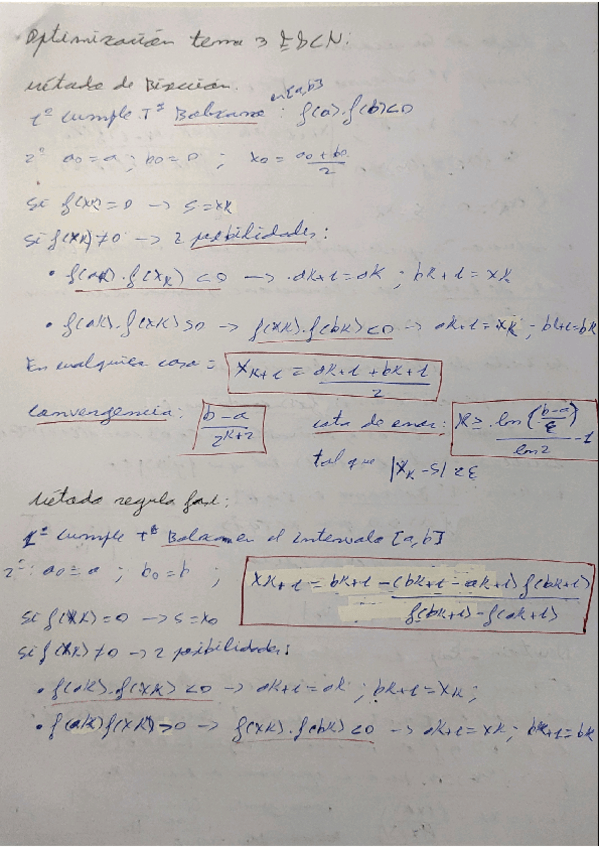 Optimización tema 3 :
Método de Bisección.
1º cumple Tª Bolzano en [a,b] : f(a).f(b)<0
2º a0=a ; b0=0 ; x0 = (a0+b0)/2
si f(xk)=0 → s=xk
si f(xk)≠0 → 2 posibilidades:
• f(ak).f(xk)<0 → ak+1=ak ; bk+1=xk
• f(ak).f(xk)>0 → f(xk).f(bk)<0 → ak+1=xk ; bk+1=bk
En cualquier caso = xk+1 = (ak+1+bk+1)/2
Convergencia: (b-a)/2^(k+1) cota de error: k ≥ ln((b-a)/ε)/ln2 -1
tal que |xk-s|≤ε
Método regula falsi:
1º cumple Tª Bolzano en el intervalo [a,b]
2º: a0=a ; b0=b ; xk+1 = bk+1 - (bk+1-ak+1)f(bk+1)/(f(bk+1)-f(ak+1))
si f(xk)=0 → s=x0
si f(xk)≠0 → 2 posibilidades:
• f(ak).f(xk)<0 → ak+1=ak ; bk+1=xk ;
• f(ak)f(xk)>0 → f(xk).f(bk)<0 → ak+1=xk ; bk+1=bk